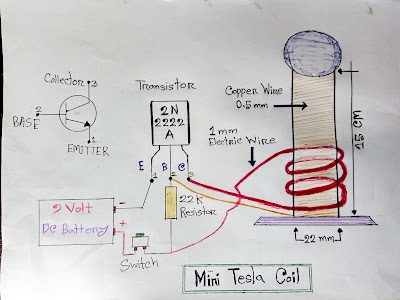 Collector 3
2
BASE
1
EMITTER
Transistor
2N
2222
A
E B C
1 2 3
22K
Resistor
9 Volt
DC Battery
-
+
Switch
Copper Wire
0.5mm
1mm
Electric Wire
15 CM
22 mm
Mini Tesla Coil